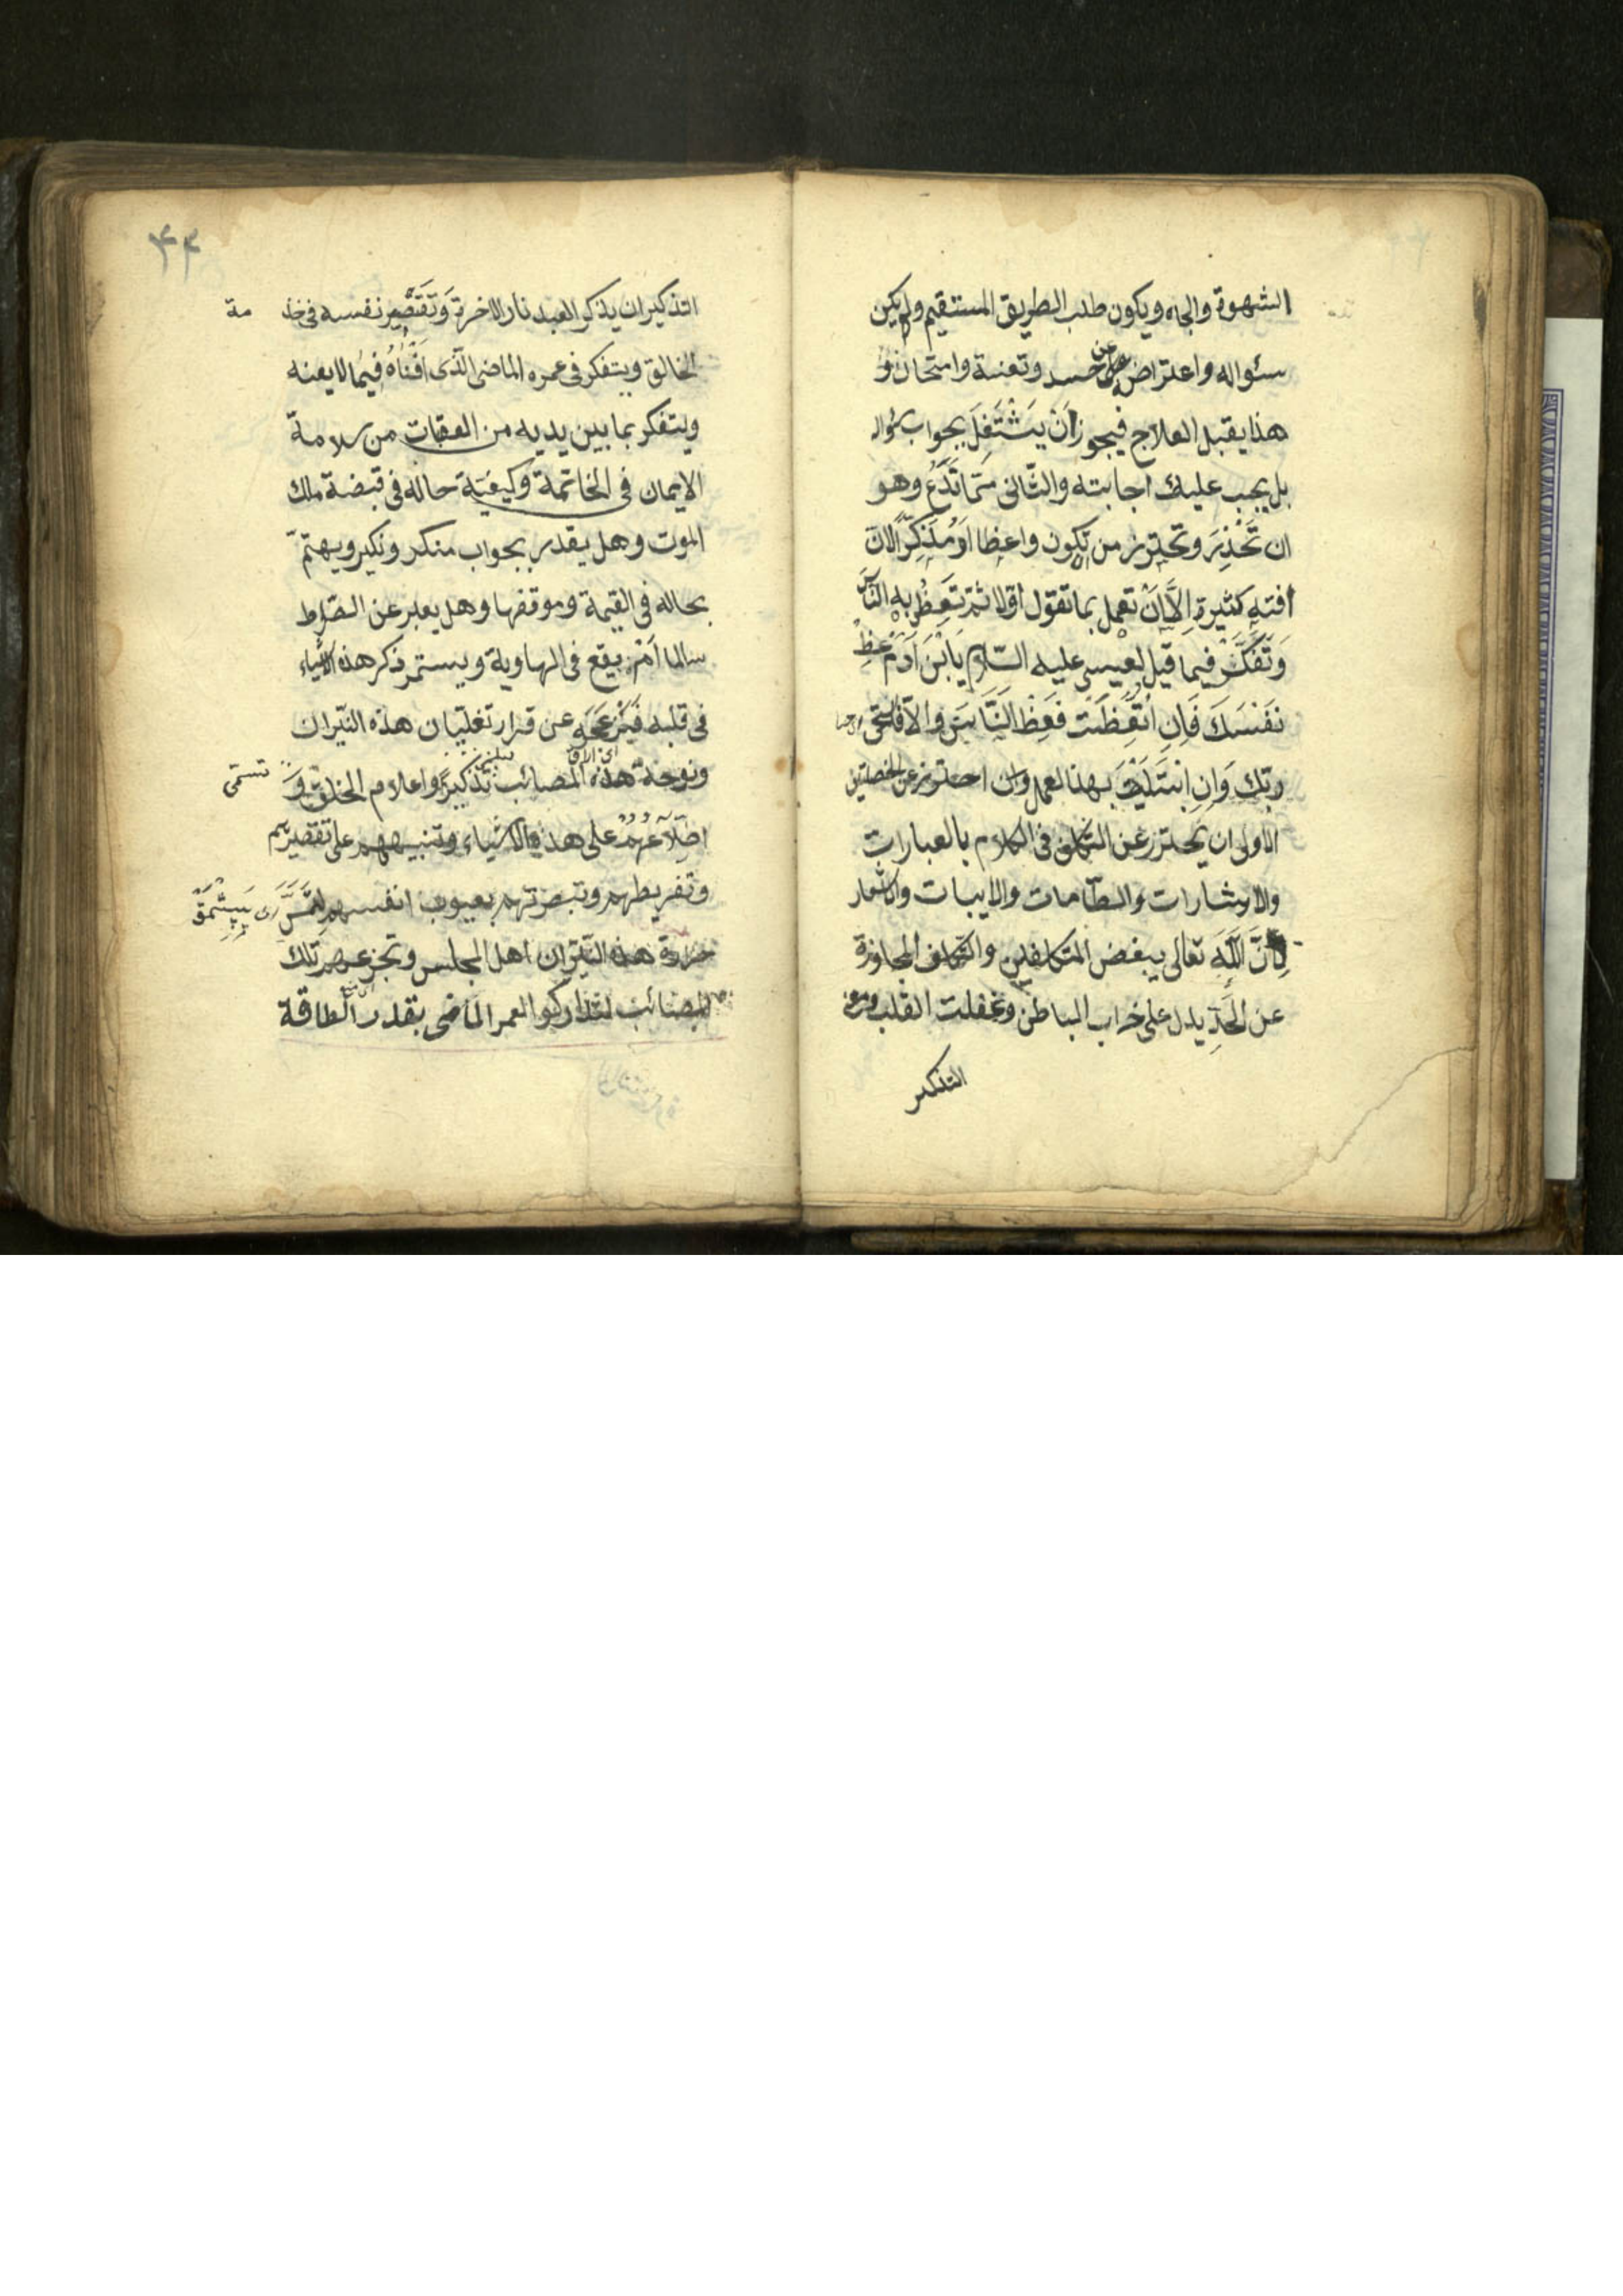 الشهوة والجاه ويكون طلب الطريق المستقيم ولم يكن
سئواله واعتراض عن حسد وتعنة وامتحان و
هذا يقبل العلاج فيجوز اَنْ يَشْتَغِلَ بجواب سؤاله
بل يجب عليك اجابته والثّانى ممّا تَدَعُ وهو
ان تَحْذِرَ وتحترز من ان تكون واعظا اَوْ مُذَكِّرًا لانّ
افته كثيرة اِلَّا اَنْ تعمل بما تقول اوّلا ثمّ تَعِظُ به النّاسَ
وَتَفَكَّرْ فيما قيل لعيسى عليه السّلام يَا ابْنَ اٰدَمَ عِظْ
نَفْسَكَ فَاِنِ اتَّعَظَتْ فَعِظِ النَّاسَ والّا فاستحى
ربّك وَاِنِ ابْتَلَيْتَ بهذا العمل وان احترز عن الخصلتين
الاولى ان يَحترز عن التكلّف فى الكلام بالعبارات
والاشارات والطّامات والابيات والاشعار
لِاَنَّ اللّٰهَ تعالى يبغض المتكلفين والمتكلف المجاوزة
عن الحَدِّ يدل على خراب الباطن وغفلت القلب ومعنى
التذكير
٤٣
التذكير ان يذكر العبد نار الاخرة وَتَقْصِير نفسه فى خدمة
الخالق ويتفكر فى عمره الماضى الّذى اَفْنَاهُ فِيمَا لا يعنه
ويتفكر بما بين يديه من العقبات من سلامة
الايمان فى الخاتمة وكيفيّة حاله فى قبضة ملك
الموت وهل يقدر بجواب منكر ونكير ويهتمّ
بحاله فى القيمة وموقفها وهل يعبر عن الصّراط
سالما اَمْ يقع فى الهاوية ويستمر ذكر هذه الاشياء
فى قلبه فَيُزْعِجُه عن قرار تغليان هذه النّيران
ونوحة هذه المصائب تُسَمّى تذكيرًا واعلام الخلق وَ
اطّلاعهُمْ على هذه الاشياء وتنبيههم على تقصيرهم
وتفريطهم وتبصرتهم بعيوب انفسهم لِتَمَسَّ
حرارة هذه النّيران اهل المجلس وتجزعهم تلك
المصائب لتداركوا العمر الماضى بقدر الطاقة